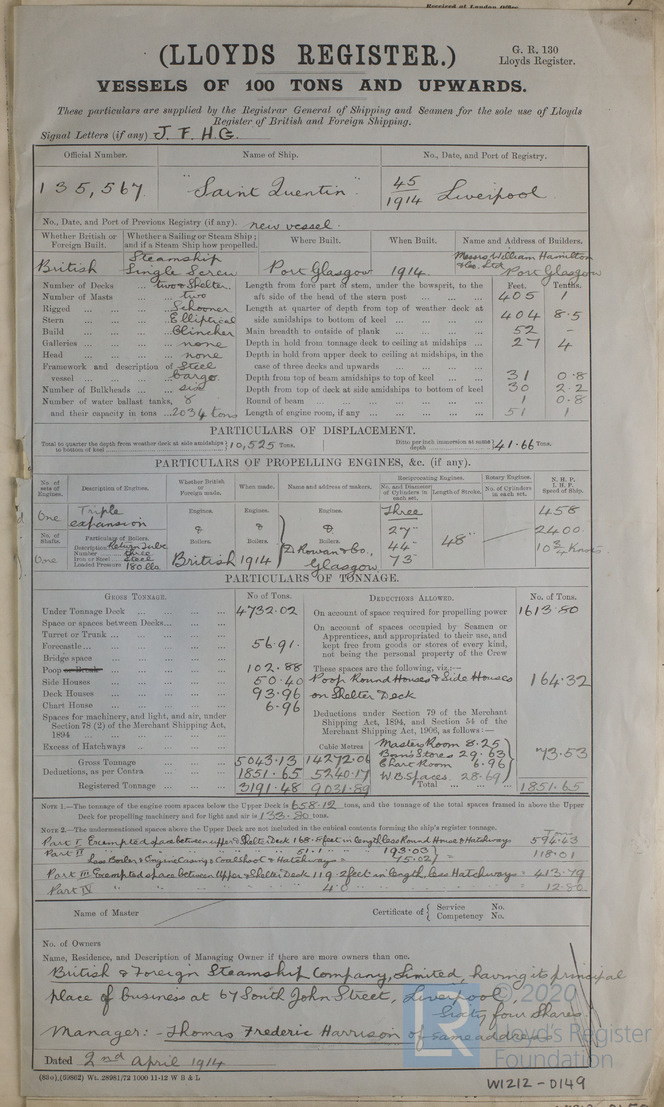 Received at London Office
(LLOYDS REGISTER.)
G. R. 130
Lloyds Register.
VESSELS OF 100 TONS AND UPWARDS.
These particulars are supplied by the Registrar General of Shipping and Seamen for the sole use of Lloyds
Register of British and Foreign Shipping.
Signal Letters (if any) J. F. H. G.
Official Number. Name of Ship. No., Date, and Port of Registry.
135,567 "Saint Quentin" 45/1914 Liverpool
No., Date, and Port of Previous Registry (if any). new vessel.
Whether British or Foreign Built. Whether a Sailing or Steam Ship; and if a Steam Ship how propelled. Where Built. When Built. Name and Address of Builders.
British Steamship Single Screw Port Glasgow 1914. Messrs William Hamilton & Co. Ltd Port Glasgow
Number of Decks ... two & Shelter
Number of Masts ... two
Rigged ... Schooner
Stern ... Elliptical
Build ... Clincher
Galleries ... none
Head ... none
Framework and description of vessel ... Steel cargo
Number of Bulkheads ... six
Number of water ballast tanks, 8
and their capacity in tons ... 2034 tons
Feet. Tenths.
Length from fore part of stem, under the bowsprit, to the aft side of the head of the stern post ... 405 1
Length at quarter of depth from top of weather deck at side amidships to bottom of keel ... 404 8.5
Main breadth to outside of plank ... 52 -
Depth in hold from tonnage deck to ceiling at midships ... 27 4
Depth in hold from upper deck to ceiling at midships, in the case of three decks and upwards ...
Depth from top of beam amidships to top of keel ... 31 0.8
Depth from top of deck at side amidships to bottom of keel 30 2.2
Round of beam ... 1 0.8
Length of engine room, if any ... 51 1
PARTICULARS OF DISPLACEMENT.
Total to quarter the depth from weather deck at side amidships to bottom of keel } 10,525 Tons. Ditto per inch immersion at same depth } 41.66 Tons.
PARTICULARS OF PROPELLING ENGINES, &c. (if any).
No. of sets of Engines. Description of Engines. Whether British or Foreign made. When made. Name and address of makers. Reciprocating Engines. No. and Diameter of Cylinders in each set. Length of Stroke. Rotary Engines. No. of Cylinders in each set. N. H. P. I. H. P. Speed of Ship.
One Triple expansion Engines. & Boilers. British Engines. & Boilers. 1914 Engines. Boilers. D. Rowan & Co., Glasgow Three 27" 44" 73" 48" 458 2400 10 3/4 Knots
No. of Shafts. Particulars of Boilers.
One Description Return Tube
Number three
Iron or Steel Steel
Loaded Pressure 180 lbs
PARTICULARS OF TONNAGE.
GROSS TONNAGE. No of Tons. DEDUCTIONS ALLOWED. No. of Tons.
Under Tonnage Deck ... 4732.02
Space or spaces between Decks ...
Turret or Trunk ...
Forecastle ... 56.91.
Bridge space
Poop or Break ... 102.88
Side Houses ... 50.40
Deck Houses ... 93.96
Chart House ... 6.96
Spaces for machinery, and light, and air, under Section 78 (2) of the Merchant Shipping Act, 1894
Excess of Hatchways
Gross Tonnage ... 5043.13
Deductions, as per Contra ... 1851.65
Registered Tonnage ... 3191.48
Cubic Metres
14272.06
5240.17
9031.89
On account of space required for propelling power 1613.80
On account of spaces occupied by Seamen or Apprentices, and appropriated to their use, and kept free from goods or stores of every kind, not being the personal property of the Crew
These spaces are the following, viz:—
Poop Round Houses & Side Houses on Shelter Deck 164.32
Deductions under Section 79 of the Merchant Shipping Act, 1894, and Section 54 of the Merchant Shipping Act, 1906, as follows:—
Masters Room 8.25
Bosns Stores 29.63
Chart Room 6.96
W.B Spaces 28.69
73.53
Total ... 1851.65
NOTE 1.—The tonnage of the engine room spaces below the Upper Deck is 658.12 tons, and the tonnage of the total spaces framed in above the Upper
Deck for propelling machinery and for light and air is 133.80 tons.
NOTE 2.—The undermentioned spaces above the Upper Deck are not included in the cubical contents forming the ship's register tonnage. Tons
Part I Exempted space between upper & Shelter Deck 168.8 feet in length less Round House & Hatchways 594.43
Part II " " " " 51.1 " " 193.03
Less Boiler & Engine Casing & Coalshoot & Hatchways = 75.02 = 118.01
Part III Exempted space between Upper & Shelter Deck 119.2 feet in length, less Hatchways = 413.79
Part IV " " " 4.0 " " 12.80
Name of Master Certificate of { Service No. Competency No.
No. of Owners
Name, Residence, and Description of Managing Owner if there are more owners than one.
British & Foreign Steamship Company, Limited, having its principal
place of business at 67 South John Street, Liverpool
Sixty four shares
Manager: - Thomas Frederic Harrison of same address
Dated 2nd April 1914
(83o),(69862) Wt. 28981/72 1000 11-12 W B & L
© 2020
LR
Lloyd's Register
Foundation
W1212-0149